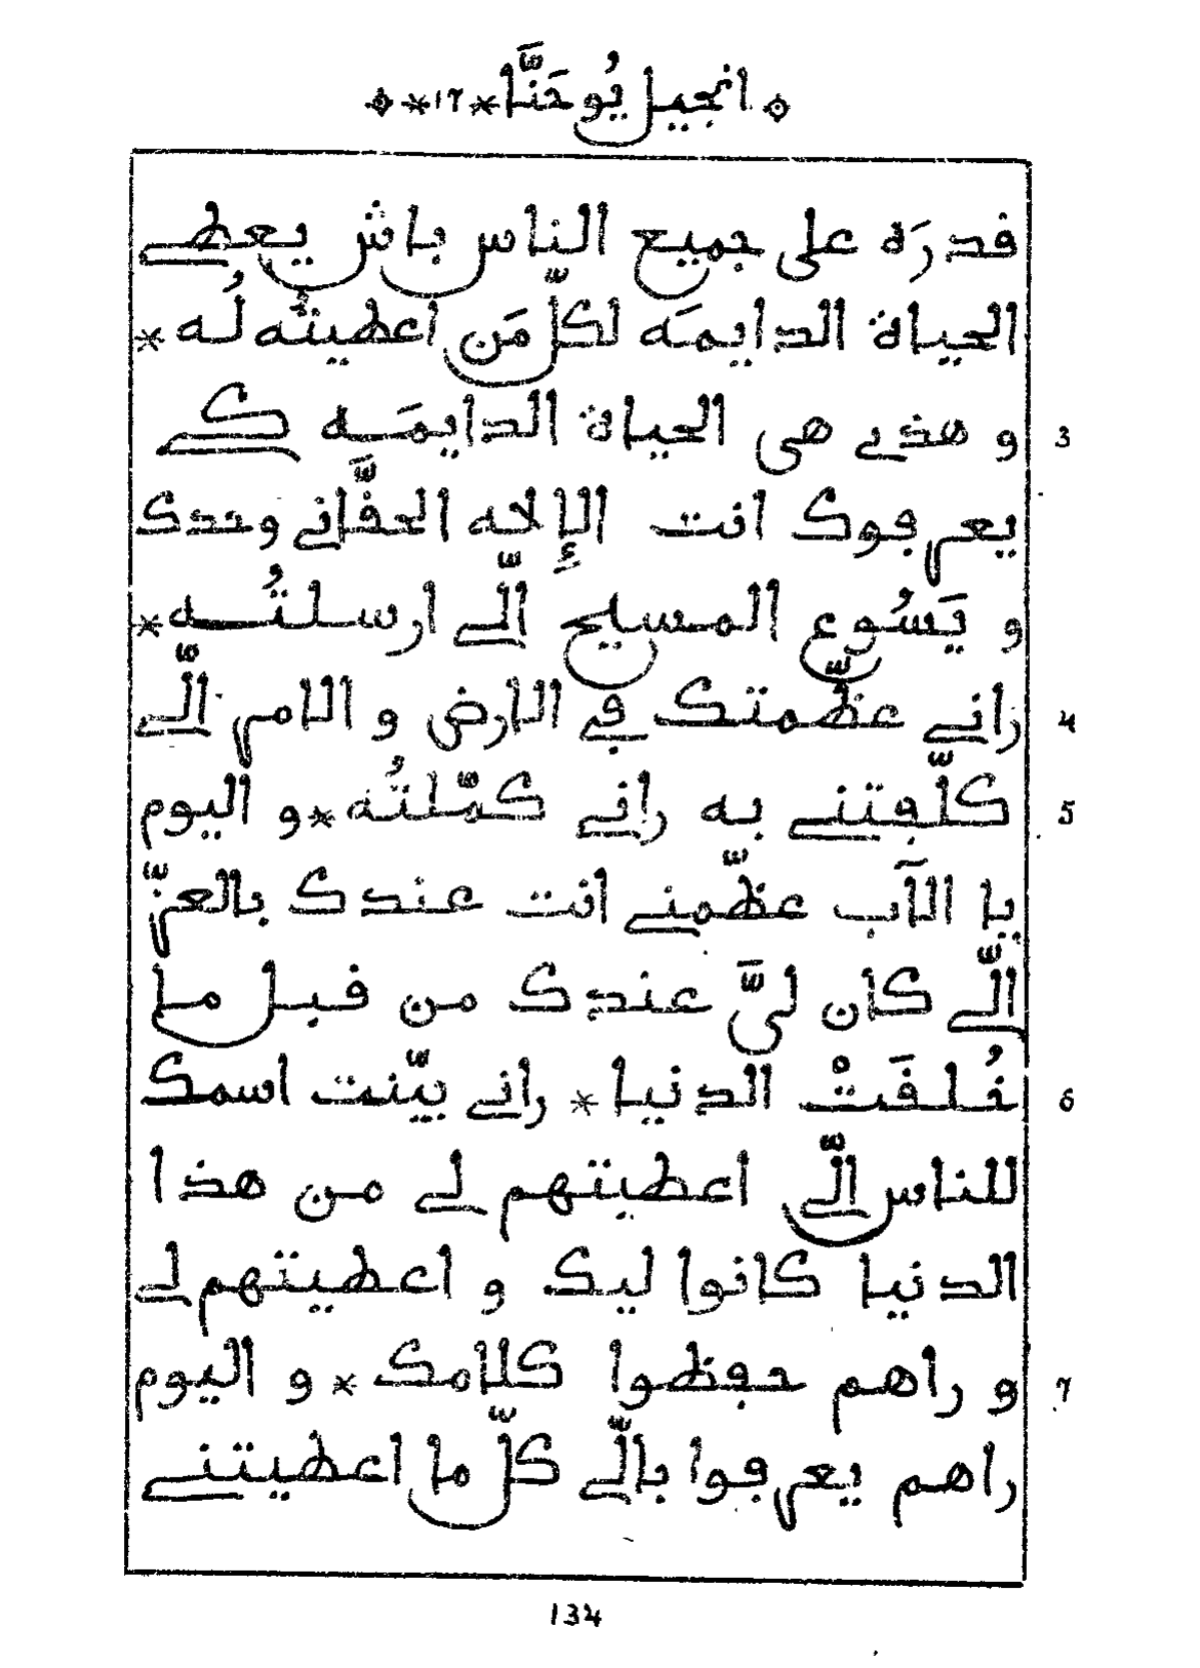 انجيل يُوحَنَّا * 17 *
قدرَة على جميع الناس باش يعطي
الحياة الدايمَه لكلّ مَن اعطيتُه لُه *
3 و هذي هي الحياة الدايمَه كي
يعرفوك انت الإلاه الحقَّاني وحدك
و يَسُوع المسيح الّي ارسلتُه *
4 راني عظّمتك في الارض و الامر الّي
5 كلّفتني به راني كمّلتُه * و اليوم
يا الآب عظّمني انت عندك بالعزّ
الّي كان ليَّ عندك من قبل ما
6 خُلقَتْ الدنيا * راني بيّنت اسمك
للناس الّي اعطيتهم لي من هذا
الدنيا كانوا ليك و اعطيتهم لي
7 و راهم حفظوا كلامك * و اليوم
راهم يعرفوا بالّي كلّ ما اعطيتني
134